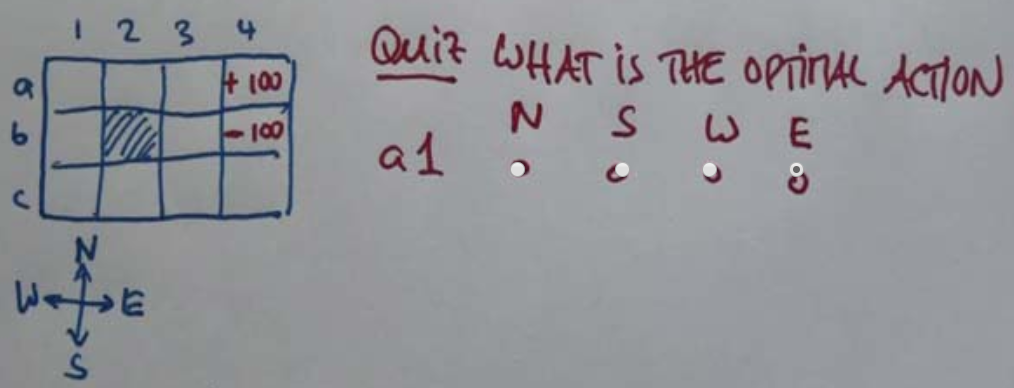 1 2 3 4
a +100
b -100
c
N
W E
S
Quiz WHAT iS THE OPTiMAL ACTION
N S W E
a1